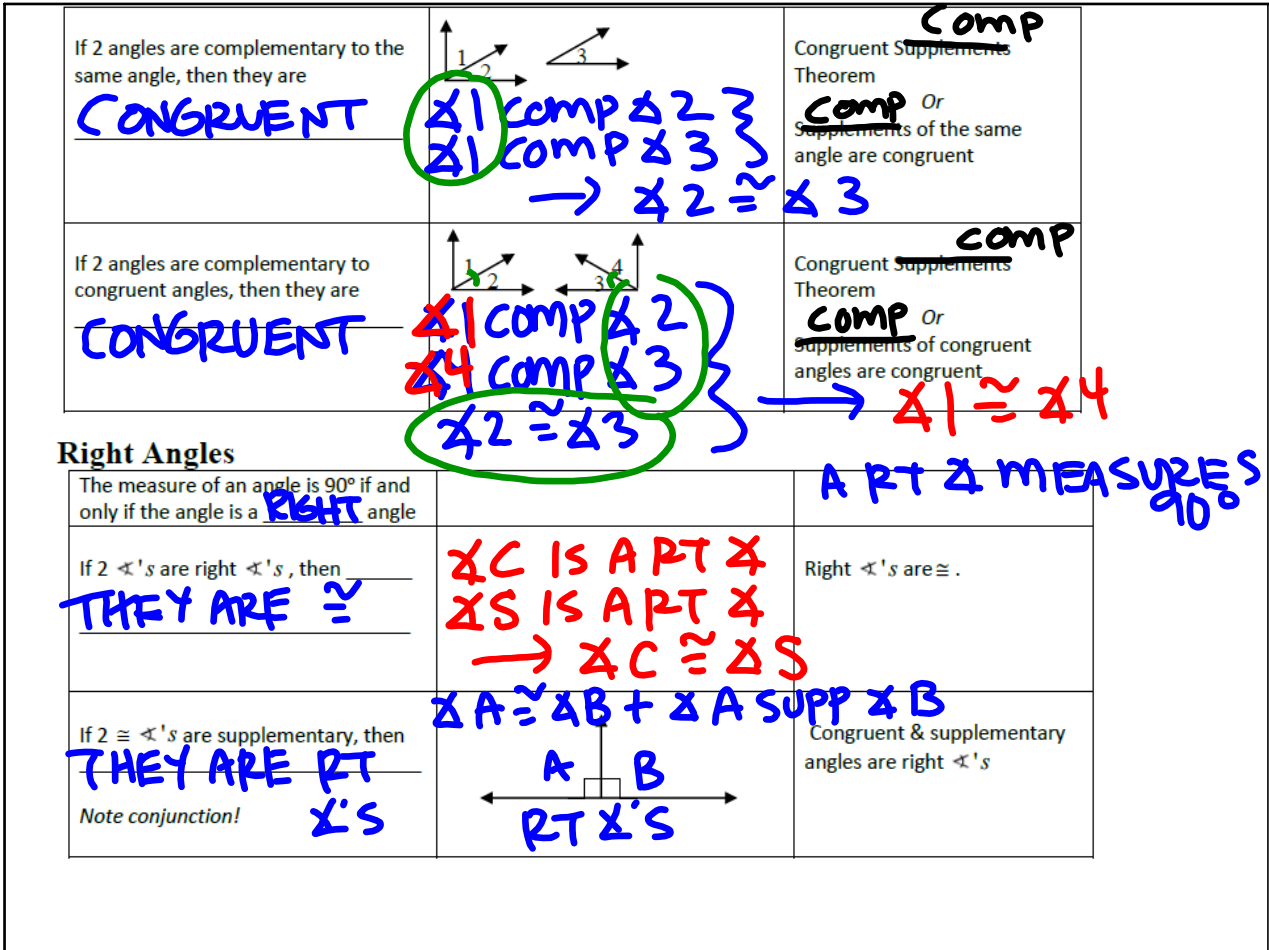 If 2 angles are complementary to the
same angle, then they are
CONGRUENT
1
2
3
∡1 comp ∡2 }
∡1 comp ∡3
→ ∡2 ≅ ∡3
Comp
Congruent Supplements
Theorem
comp Or
Supplements of the same
angle are congruent
If 2 angles are complementary to
congruent angles, then they are
CONGRUENT
1
2
4
3
∡1 comp ∡2
∡4 comp ∡3
∡2 ≅ ∡3
→ ∡1 ≅ ∡4
comp
Congruent Supplements
Theorem
comp Or
Supplements of congruent
angles are congruent
Right Angles
The measure of an angle is 90° if and
only if the angle is a RIGHT angle
A RT ∡ MEASURES
90°
If 2 ∢'s are right ∢'s, then
THEY ARE ≅
∡C IS A RT ∡
∡S IS A RT ∡
→ ∡C ≅ ∡S
Right ∢'s are ≅ .
If 2 ≅ ∢'s are supplementary, then
THEY ARE RT
∡'S
Note conjunction!
∡A ≅ ∡B + ∡A SUPP ∡B
A B
RT ∡'S
Congruent & supplementary
angles are right ∢'s